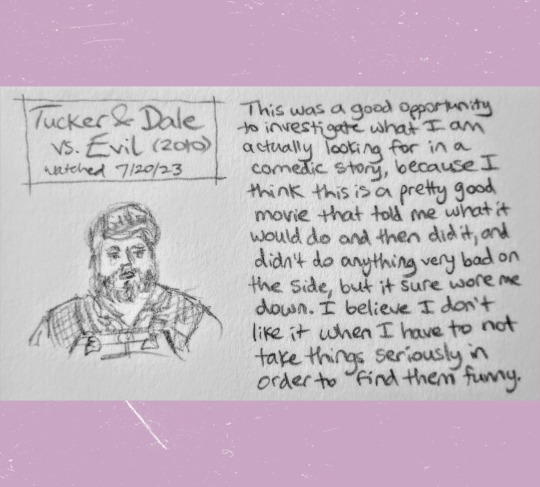 Tucker & Dale
vs. Evil (2010)
watched 7/20/23
This was a good opportunity
to investigate what I am
actually looking for in a
comedic story, because I
think this is a pretty good
movie that told me what it
would do and then did it, and
didn't do anything very bad on
the side, but it sure wore me
down. I believe I don't
like it when I have to not
take things seriously in
order to find them funny.